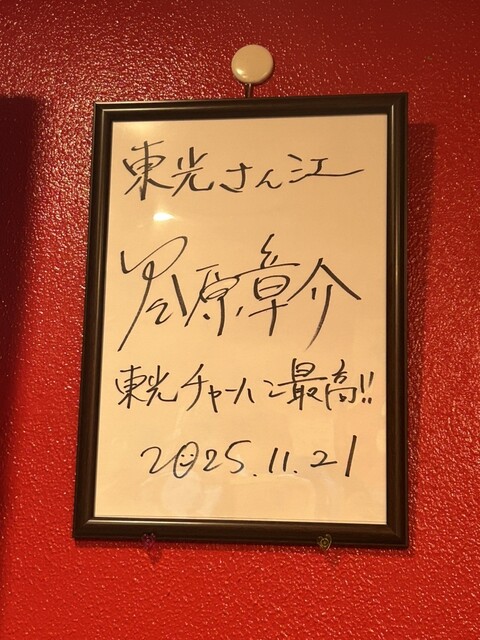 東光さん江
谷原章介
東光チャーハン最高!!
2025.11.21